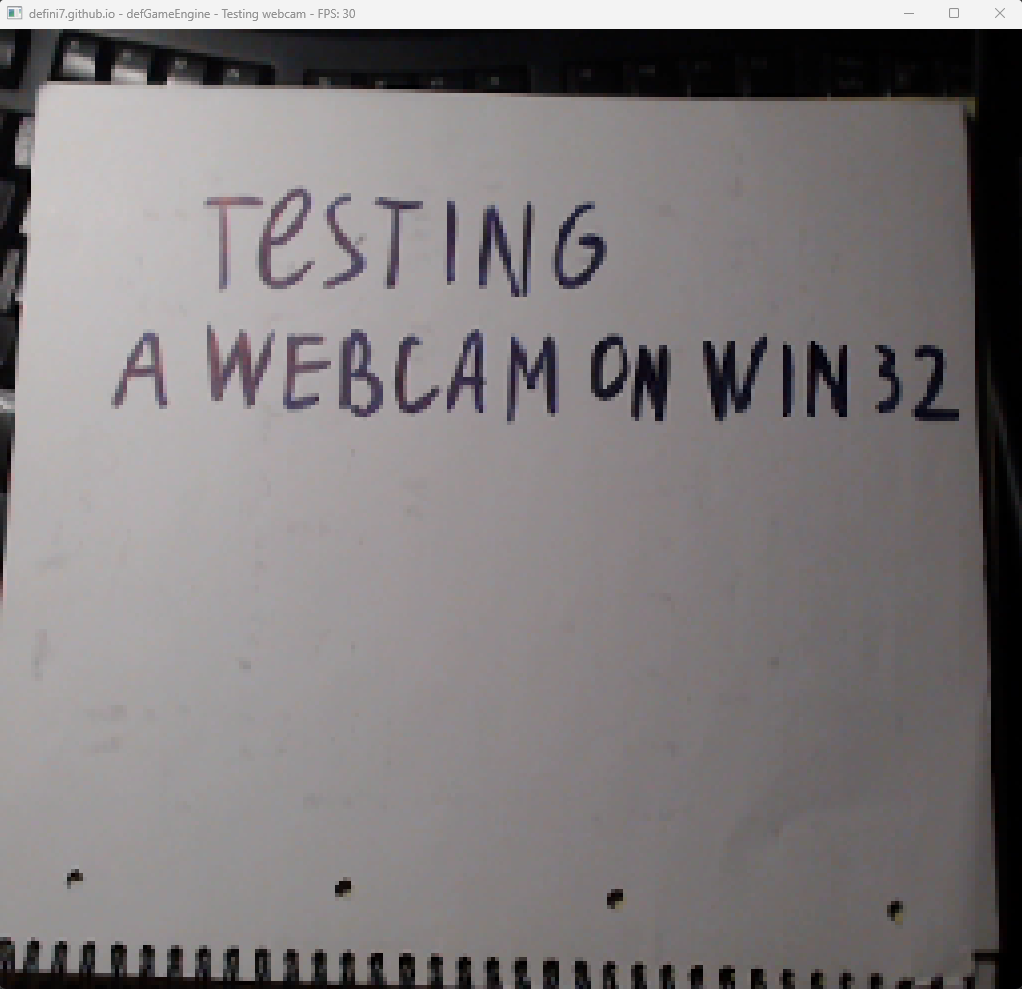 defini7.github.io - defGameEngine - Testing webcam - FPS: 30
TeSTING
A WEBCAM ON WIN 32